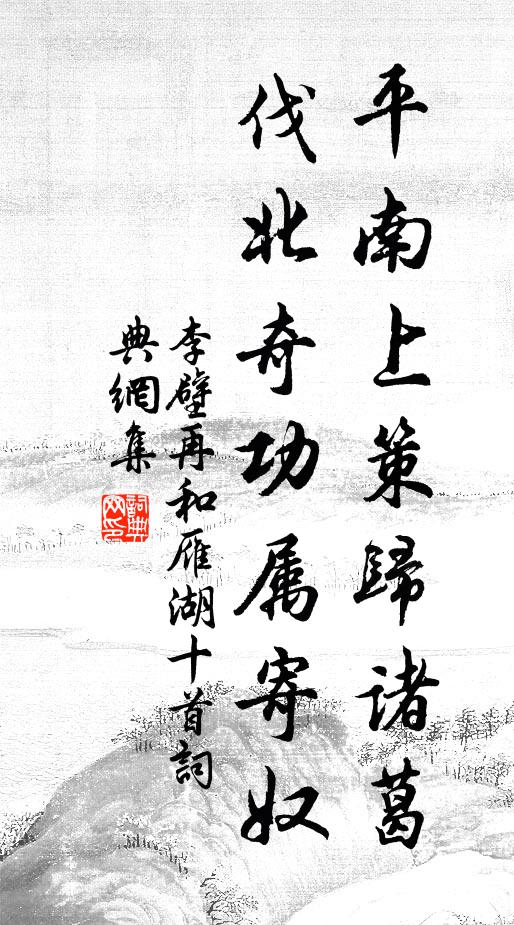 平南上策歸諸葛
伐北奇功属寄奴
李壁再和雁湖十首詞
典網集
詞典網印